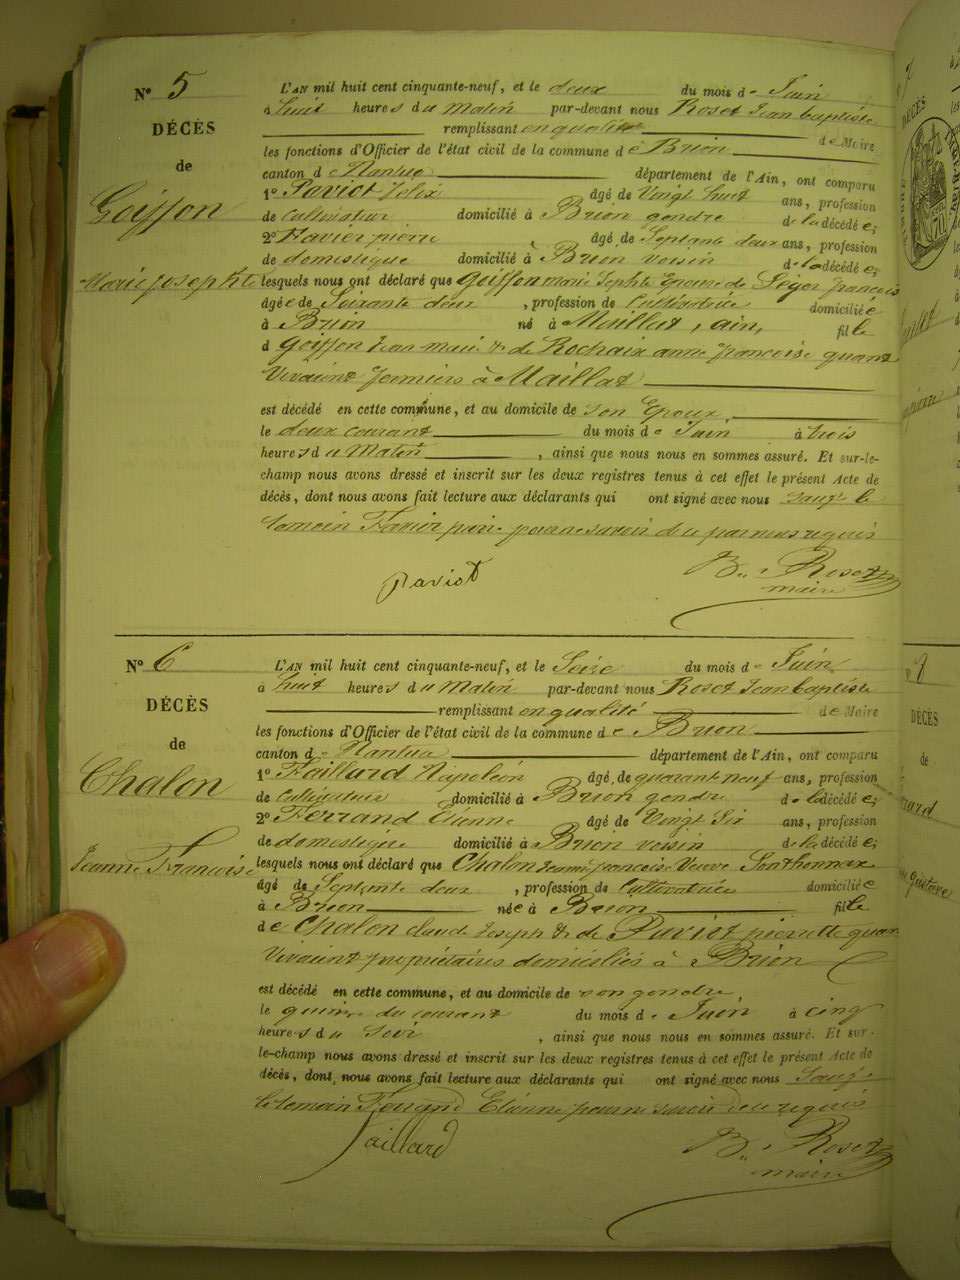 N° 5
DÉCÈS
de
Goiffon
Marie josephte
L'AN mil huit cent cinquante-neuf, et le deux du mois de Juin
à huit heures du Matin par-devant nous Roset Jean baptiste
remplissant en qualité de Maire
les fonctions d'Officier de l'état civil de la commune de Brion
canton de Nantua département de l'Ain, ont comparu
1° Paviot felix âgé de Vingt huit ans, profession
de Cultivateur domicilié à Brion gendre de la décédée;
2° Favier pierre, âgé de Septante deux ans, profession
de domestique domicilié à Brion voisin de la décédée;
lesquels nous ont déclaré que Goiffon marie Sephte Epouse de Léger françois
âgée de Soixante deux, profession de Cultivatrice domiciliée
à Brion né à Maillat, ain, fille
d Goiffon Jean marie & de Rochaix anne françoise quant
Vivaient fermiers à Maillat
est décédé en cette commune, et au domicile de son Epoux,
le deux courant du mois de Juin à trois
heures du Matin, ainsi que nous nous en sommes assuré. Et sur-le-
champ nous avons dressé et inscrit sur les deux registres tenus à cet effet le présent Acte de
décès, dont nous avons fait lecture aux déclarants qui ont signé avec nous sauf le
temoin Favier pour ne savoir de ce par nous requis
Paviot
Bte Roset
maire
N° 6
DÉCÈS
de
Chalon
Jeanne Francoise
L'AN mil huit cent cinquante-neuf, et le Seize du mois de Juin
à huit heures du Matin par-devant nous Roset Jean baptiste
remplissant en qualité de Maire
les fonctions d'Officier de l'état civil de la commune de Brion
canton de Nantua département de l'Ain, ont comparu
1° Faillard Napoléon âgé de quarant neuf ans, profession
de Cultivateur domicilié à Brion gendre de la décédée;
2° Ferrand Etienne âgé de Vingt Six ans, profession
de domestique domicilié à Brion voisin de la décédée;
lesquels nous ont déclaré que Chalon Jeanne francoise Veuve Sonthonnax
âgé de Septante deux, profession de Cultivatrice domiciliée
à Brion née à Brion fille
de Chalon claude Joseph & de Paviot pierrette quan
Vivaient propriétaires domiciliés à Brion
est décédé en cette commune, et au domicile de son gendre,
le quinze du courant du mois de Juin à cinq
heures du Soir, ainsi que nous nous en sommes assuré. Et sur-
le-champ nous avons dressé et inscrit sur les deux registres tenus à cet effet le présent Acte de
décès, dont nous avons fait lecture aux déclarants qui ont signé avec nous Sauf
le temoin Ferrand Etienne pour ne savoir de ce requis
Faillard
Bte Roset
maire
DÉCÈS
DÉCÈS
de
Gustave